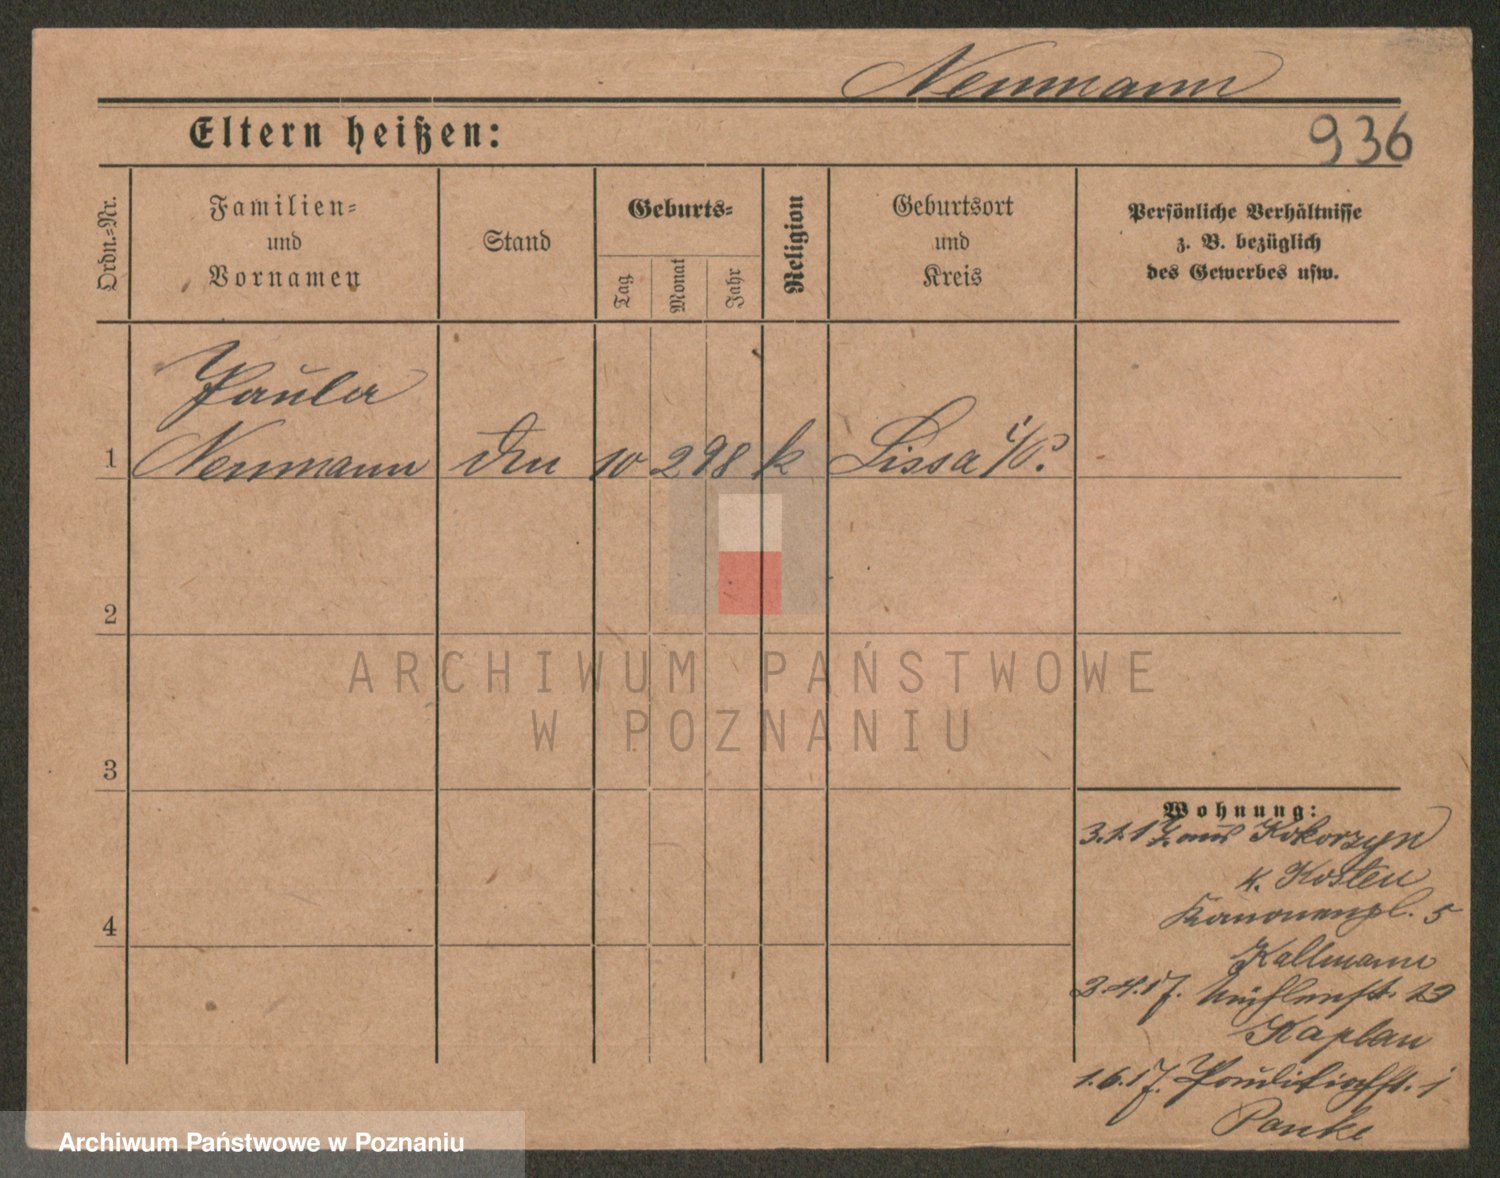 Neumann
Eltern heißen:
936
Ordn.-Nr.
Familien-
und
Vornamen
Stand
Geburts-
Tag
Monat
Jahr
Religion
Geburtsort
und
Kreis
Persönliche Verhältnisse
z. B. bezüglich
des Gewerbes usw.
Paula
1 Neumann 10 2 98 k Lissa i/P.
2
3
4
ARCHIWUM PAŃSTWOWE
W POZNANIU
Wohnung:
3.1.17. aus Kokorzyn
K. Kosten
Kanonenpl. 5
Kallmann
3.4.17. Mühlenst.
Kaplan
1.6.17.
Panke
Archiwum Państwowe w Poznaniu